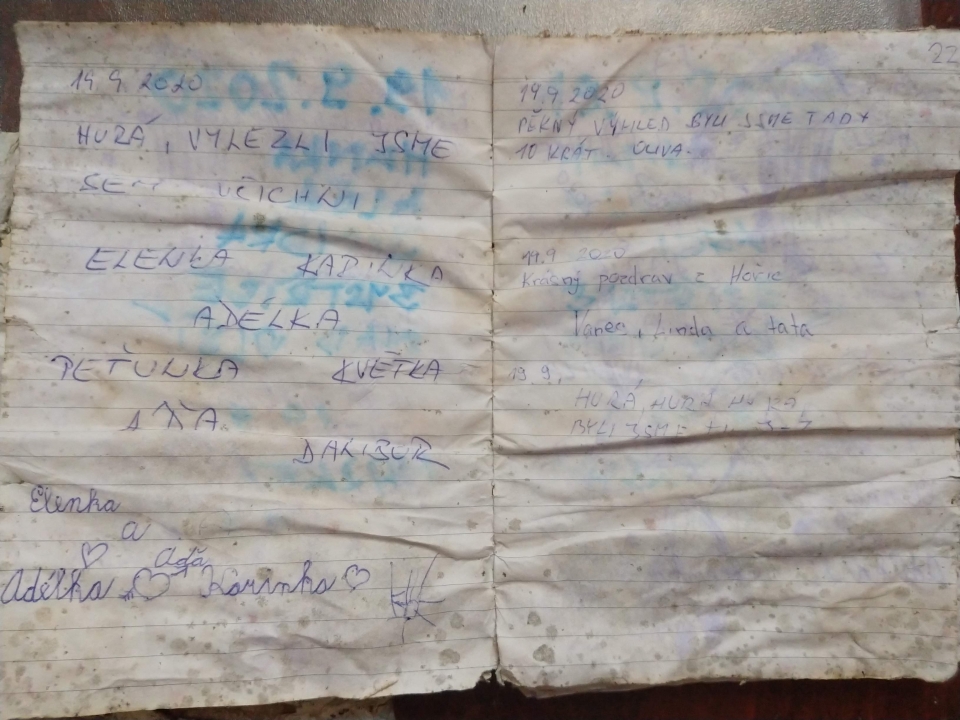 19.9.2020
HURÁ, VYLEZLI JSME
SEM VŠICHNI
ELENKA KARINKA
ADÉLKA
PEŤUNKA KVĚTKA
DALIBOR
Elenka
a
Aďa
Adélka Karinka
22
19.9.2020
PĚKNÝ VÝHLED BYLI JSME TADY
10 KRÁT.
19.9 2020
Krásný pozdrav z Hořic
Linda a tata
19.9.
HURÁ, HURÁ
BYLI JSME